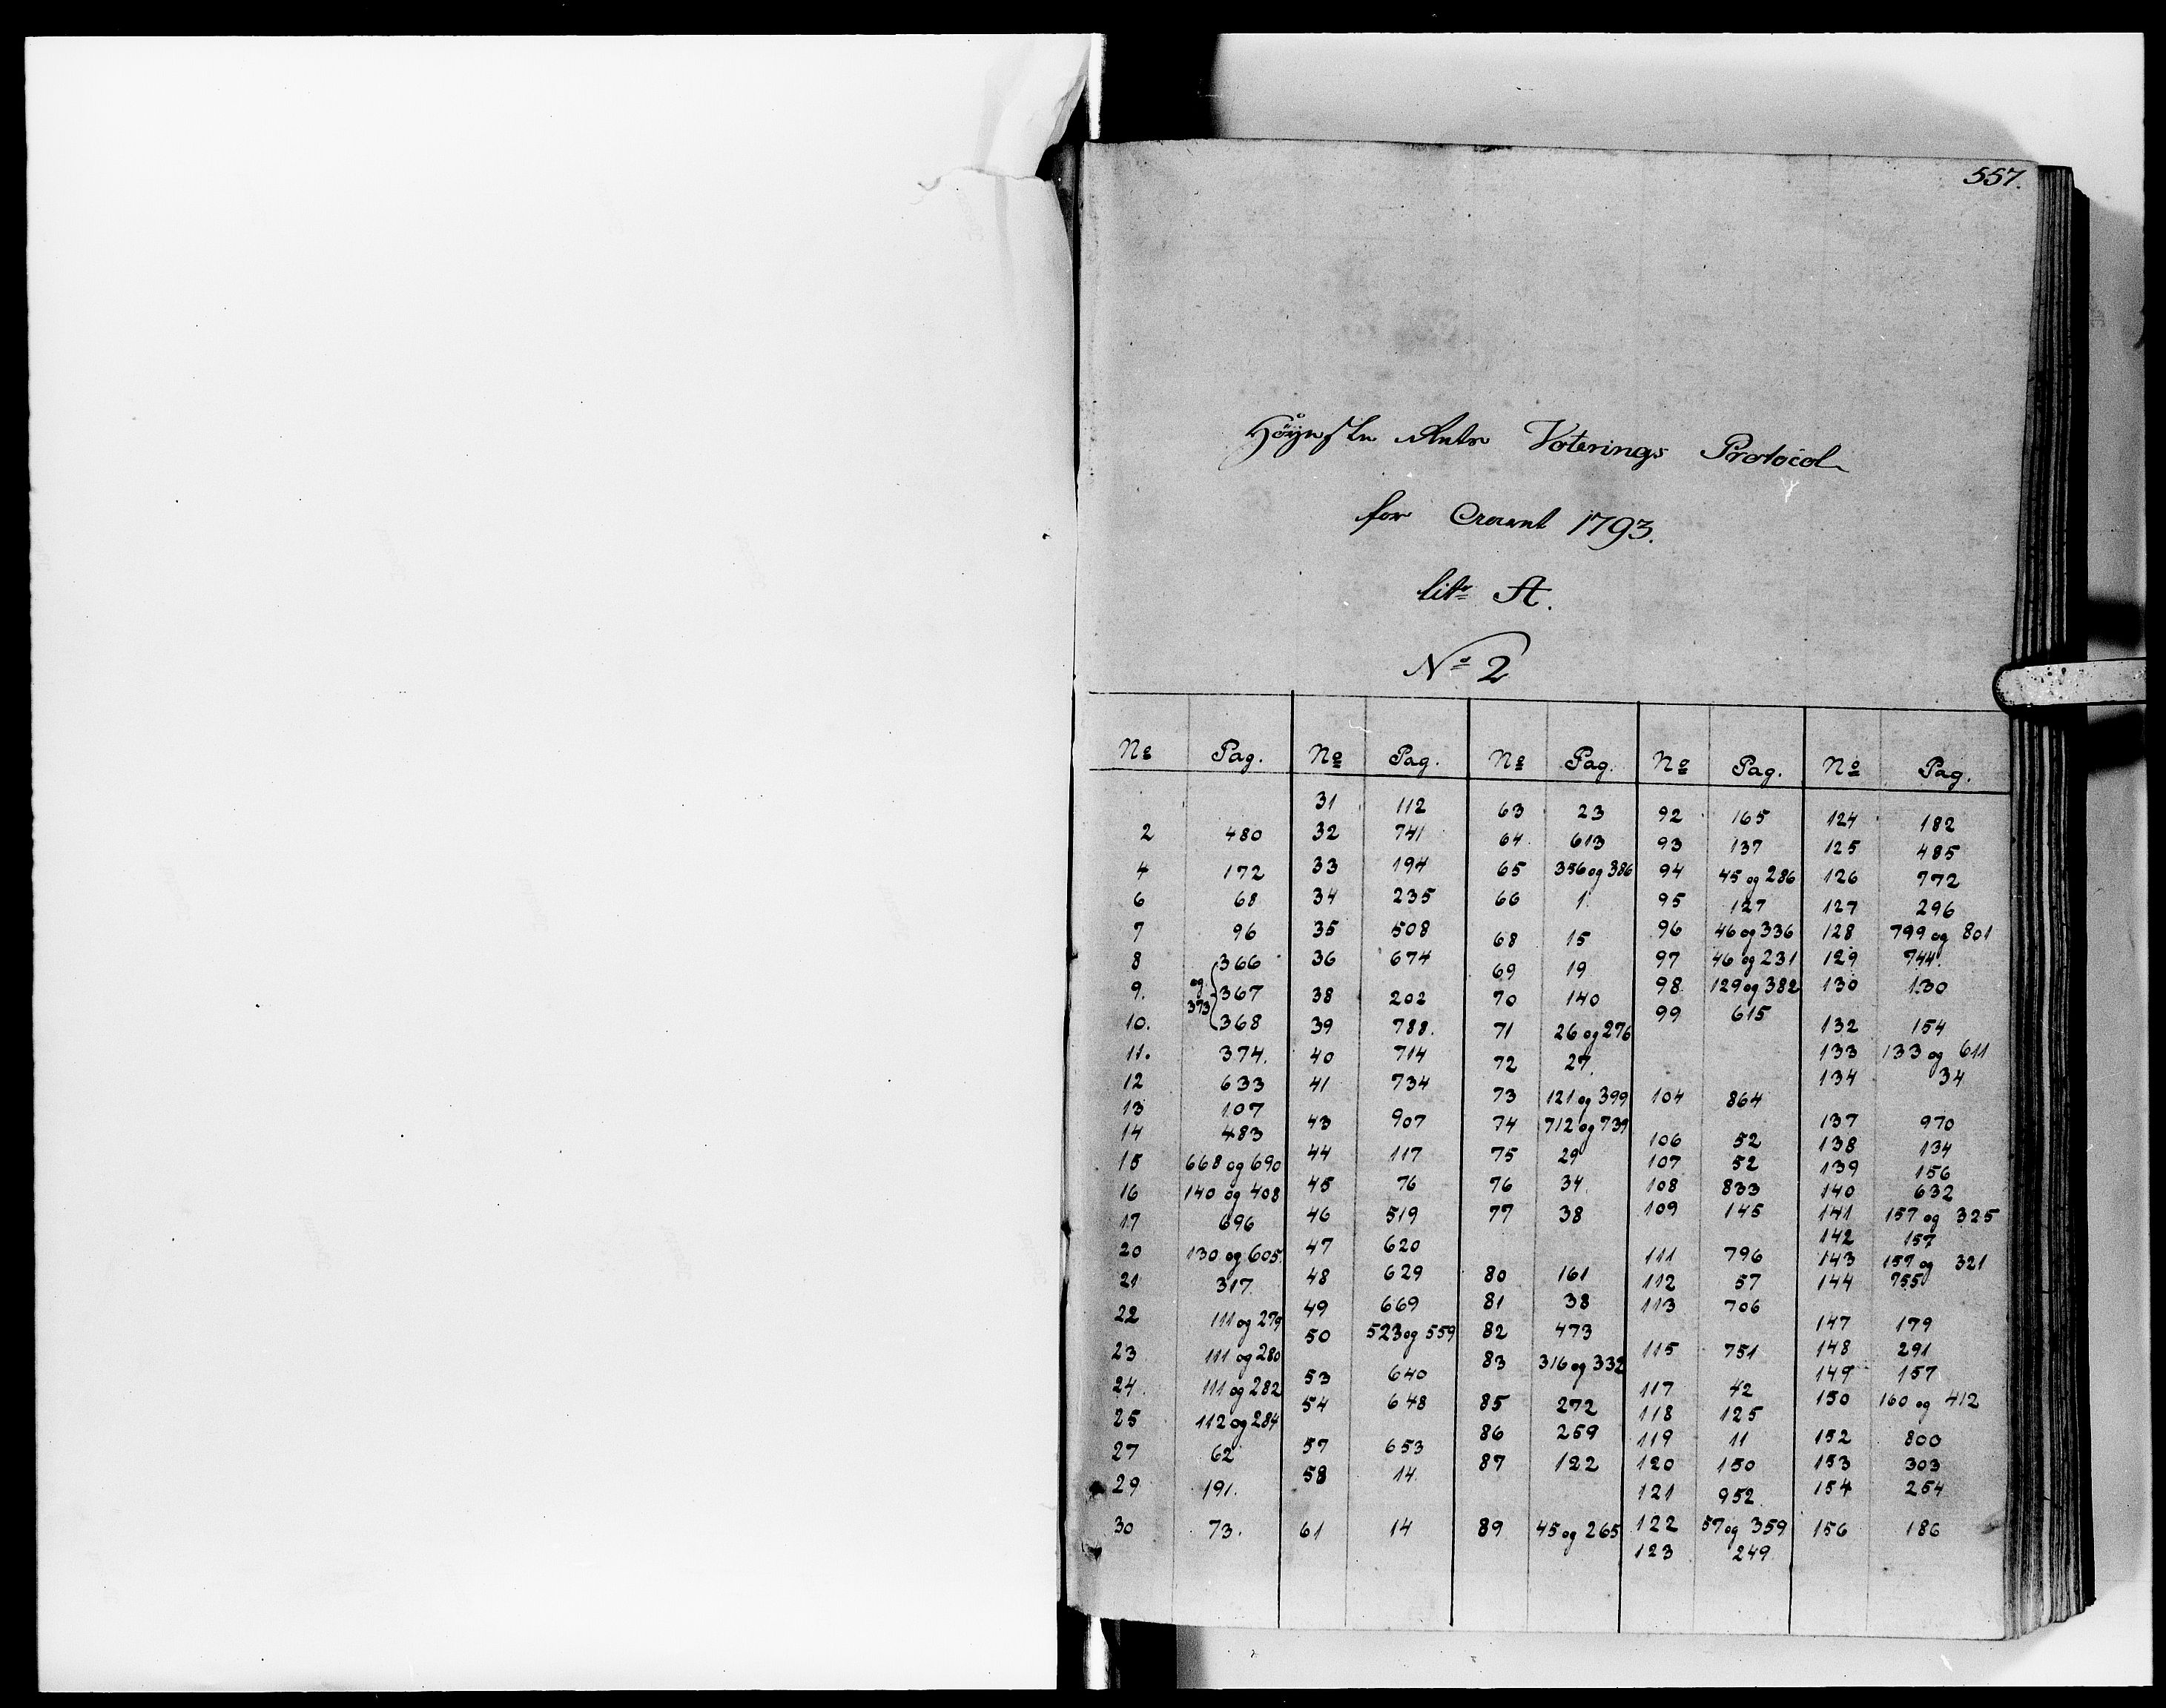 557.
Høyeste Rets Voterings Protocol
for Anno 1793.
Litr A.
No 2
No Pag. No Pag. No Pag. No Pag. No Pag.
31 112 63 23 92 165 124 182
2 480 32 741 64 613 93 137 125 485
4 172 33 194 65 356 og 386 94 45 og 286 126 772
6 68 34 235 66 1 95 127 127 296
7 96 35 508 68 15 96 46 og 336 128 799 og 801
8 366 36 674 69 19 97 46 og 231 129 744
9. og 373 367 38 202 70 140 98 129 og 382 130 130
10. 368 39 788. 71 26 og 276 99 615 132 154
11. 374. 40 714 72 27. 133 133 og 611
12 633 41 734 73 121 og 399 104 864 134 34
13 107 43 907 74 712 og 739 137 970
14 483 44 117 75 29 106 52 138 134
15 668 og 690 45 76 76 34. 107 52 139 156
16 140 og 408 46 519 77 38 108 833 140 632
17 696 47 620 109 145 141 157 og 325
20 130 og 605. 48 629 80 161 111 796 142 157
21 317. 49 669 81 38 112 57 143 157 og 321
22 111 og 279 50 523 og 559 82 473 113 706 144 755
23 111 og 280 53 640 83 316 og 332 115 751 147 179
24. 111 og 282 54 648 85 272 117 42 148 291
25 112 og 284 57 653 86 259 118 125 149 157
27 62 58 14. 87 122 119 11 150 160 og 412
29 191. 61 14 89 45 og 265 120 150 152 800
30 73. 121 952. 153 303
122 57 og 359 154 254
123 249 156 186